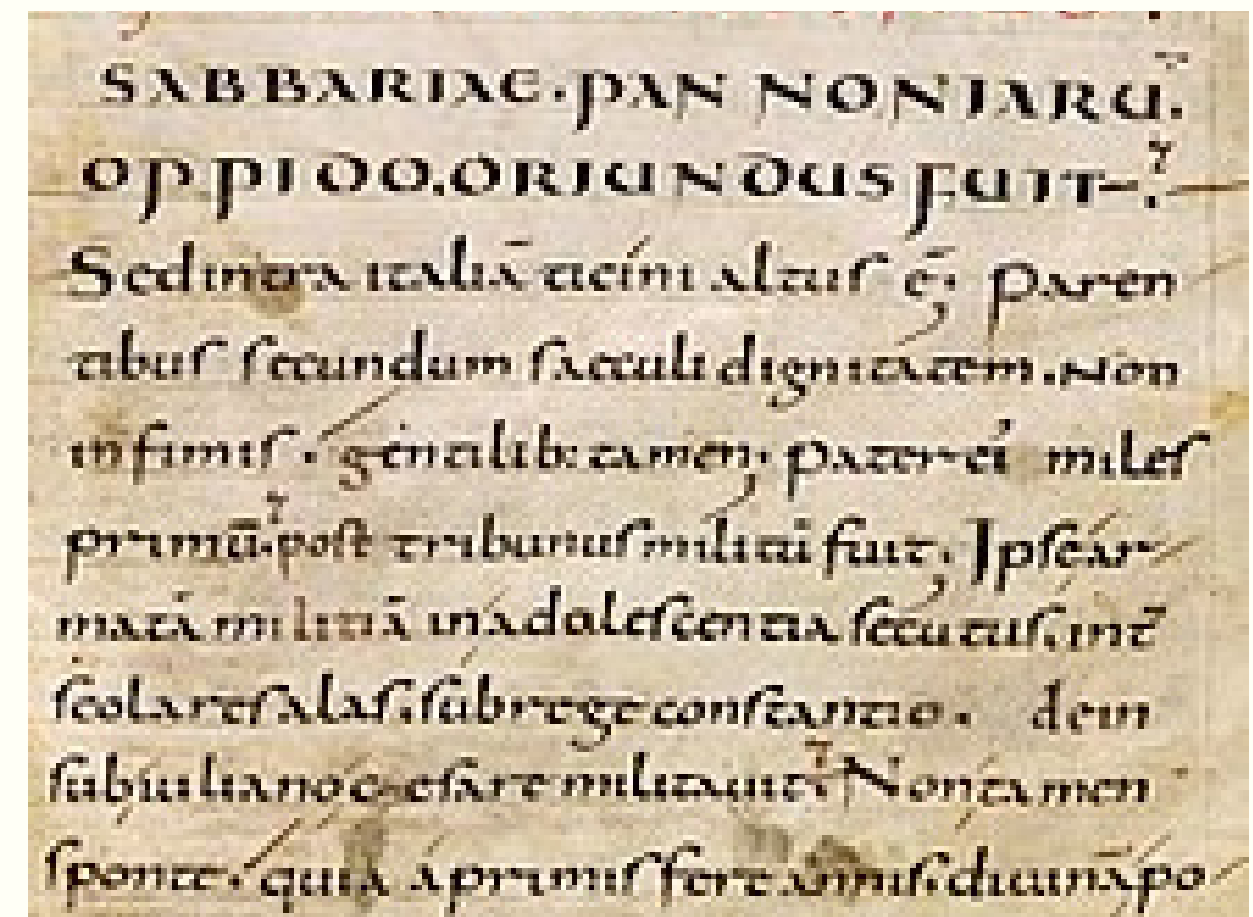 SABBARIAE. PANNONIARŪ.
OPPIDO. ORIUNDUS FUIT.
Sed intra italiā ticini altus ē; paren
tibus secundum saeculi dignitatem. Non
infimis. gentilib: tamen; pater ei miles
primū. post tribunus militū fuit; Ipse ar
matā militiā in adolescentia secutus. int̄
scolares alas. sub rege constantio. dein
sub iuliano cesare militauit. Non tamen
sponte. quia a primis fere annis. diuinā po